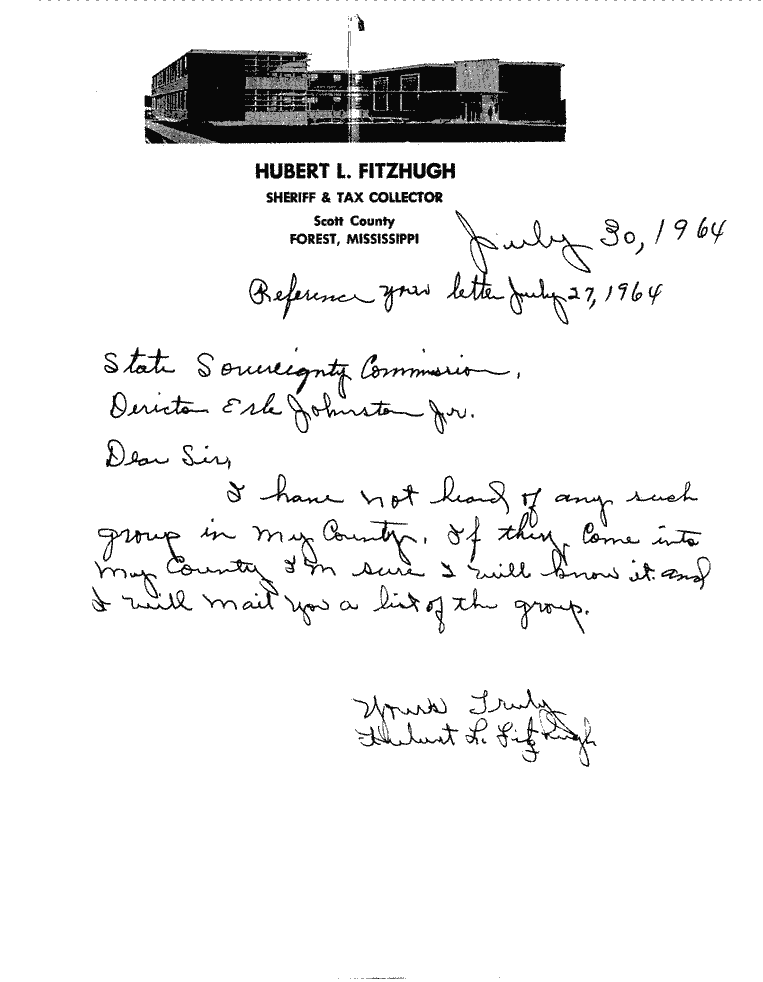 HUBERT L. FITZHUGH
SHERIFF & TAX COLLECTOR
Scott County
FOREST, MISSISSIPPI
July 30, 1964
Reference your letter July 27, 1964
State Sovereignty Commission,
Dericton Erle Johnston Jr.
Dear Sir,
I have not heard of any such
group in my County. If they Come into
my County I'm sure I will know it. and
I will mail you a list of the group.
Yours Truly
Hubert L. Fitzhugh